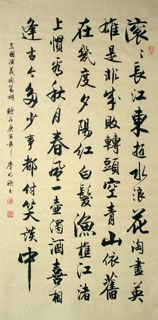 滚々長江東逝水浪花淘盡英
雄是非成敗轉頭空青山依舊
在幾度夕陽紅白髮漁樵江渚
上慣看秋月春風一壺濁酒喜相
逢古今多少事都付笑談中
三國演義開篇詞 庚寅年 李